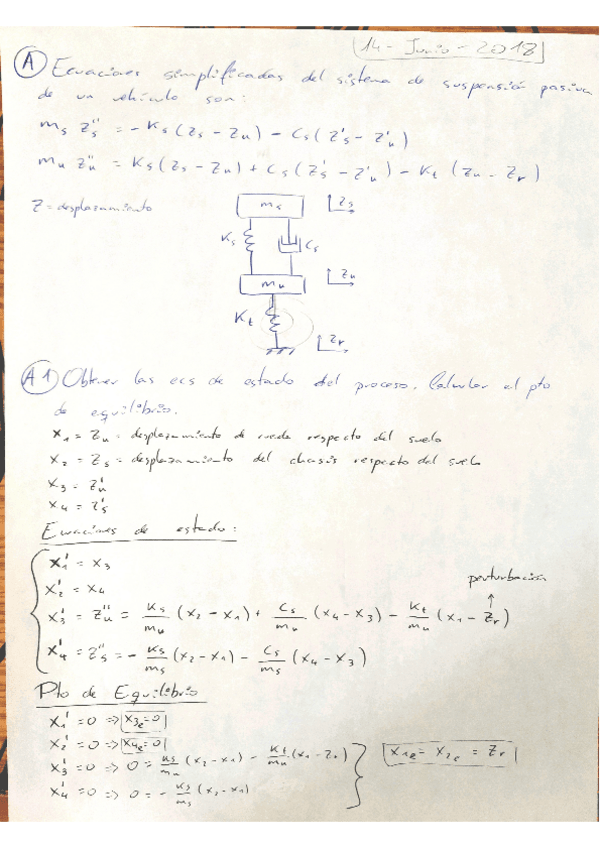 14 - Junio - 2018
A Ecuaciones simplificadas del sistema de suspensión pasiva
de un vehículo son:
ms Zs'' = - Ks (Zs - Zu) - Cs (Zs' - Zu')
mu Zu'' = Ks (Zs - Zu) + Cs (Zs' - Zu') - Kt (Zu - Zr)
Z = desplazamiento
ms Zs
Ks Cs
mu Zu
Kt
Zr
A1 Obtener las ecs de estado del proceso. Calcular el pto
de equilibrio.
x1 = Zu = desplazamiento de rueda respecto del suelo
x2 = Zs = desplazamiento del chasis respecto del suelo
x3 = Zu'
x4 = Zs'
Ecuaciones de estado:
x1' = x3
x2' = x4
perturbación
x3' = Zu'' = Ks/mu (x2 - x1) + Cs/mu (x4 - x3) - Kt/mu (x1 - Zr)
x4' = Zs'' = - Ks/ms (x2 - x1) - Cs/ms (x4 - x3)
Pto de Equilibrio
x1' = 0 => x3e = 0
x2' = 0 => x4e = 0
x3' = 0 => 0 = Ks/mu (x2 - x1) - Kt/mu (x1 - Zr)
x1e = x2e = Zr
x4' = 0 => 0 = - Ks/ms (x2 - x1)